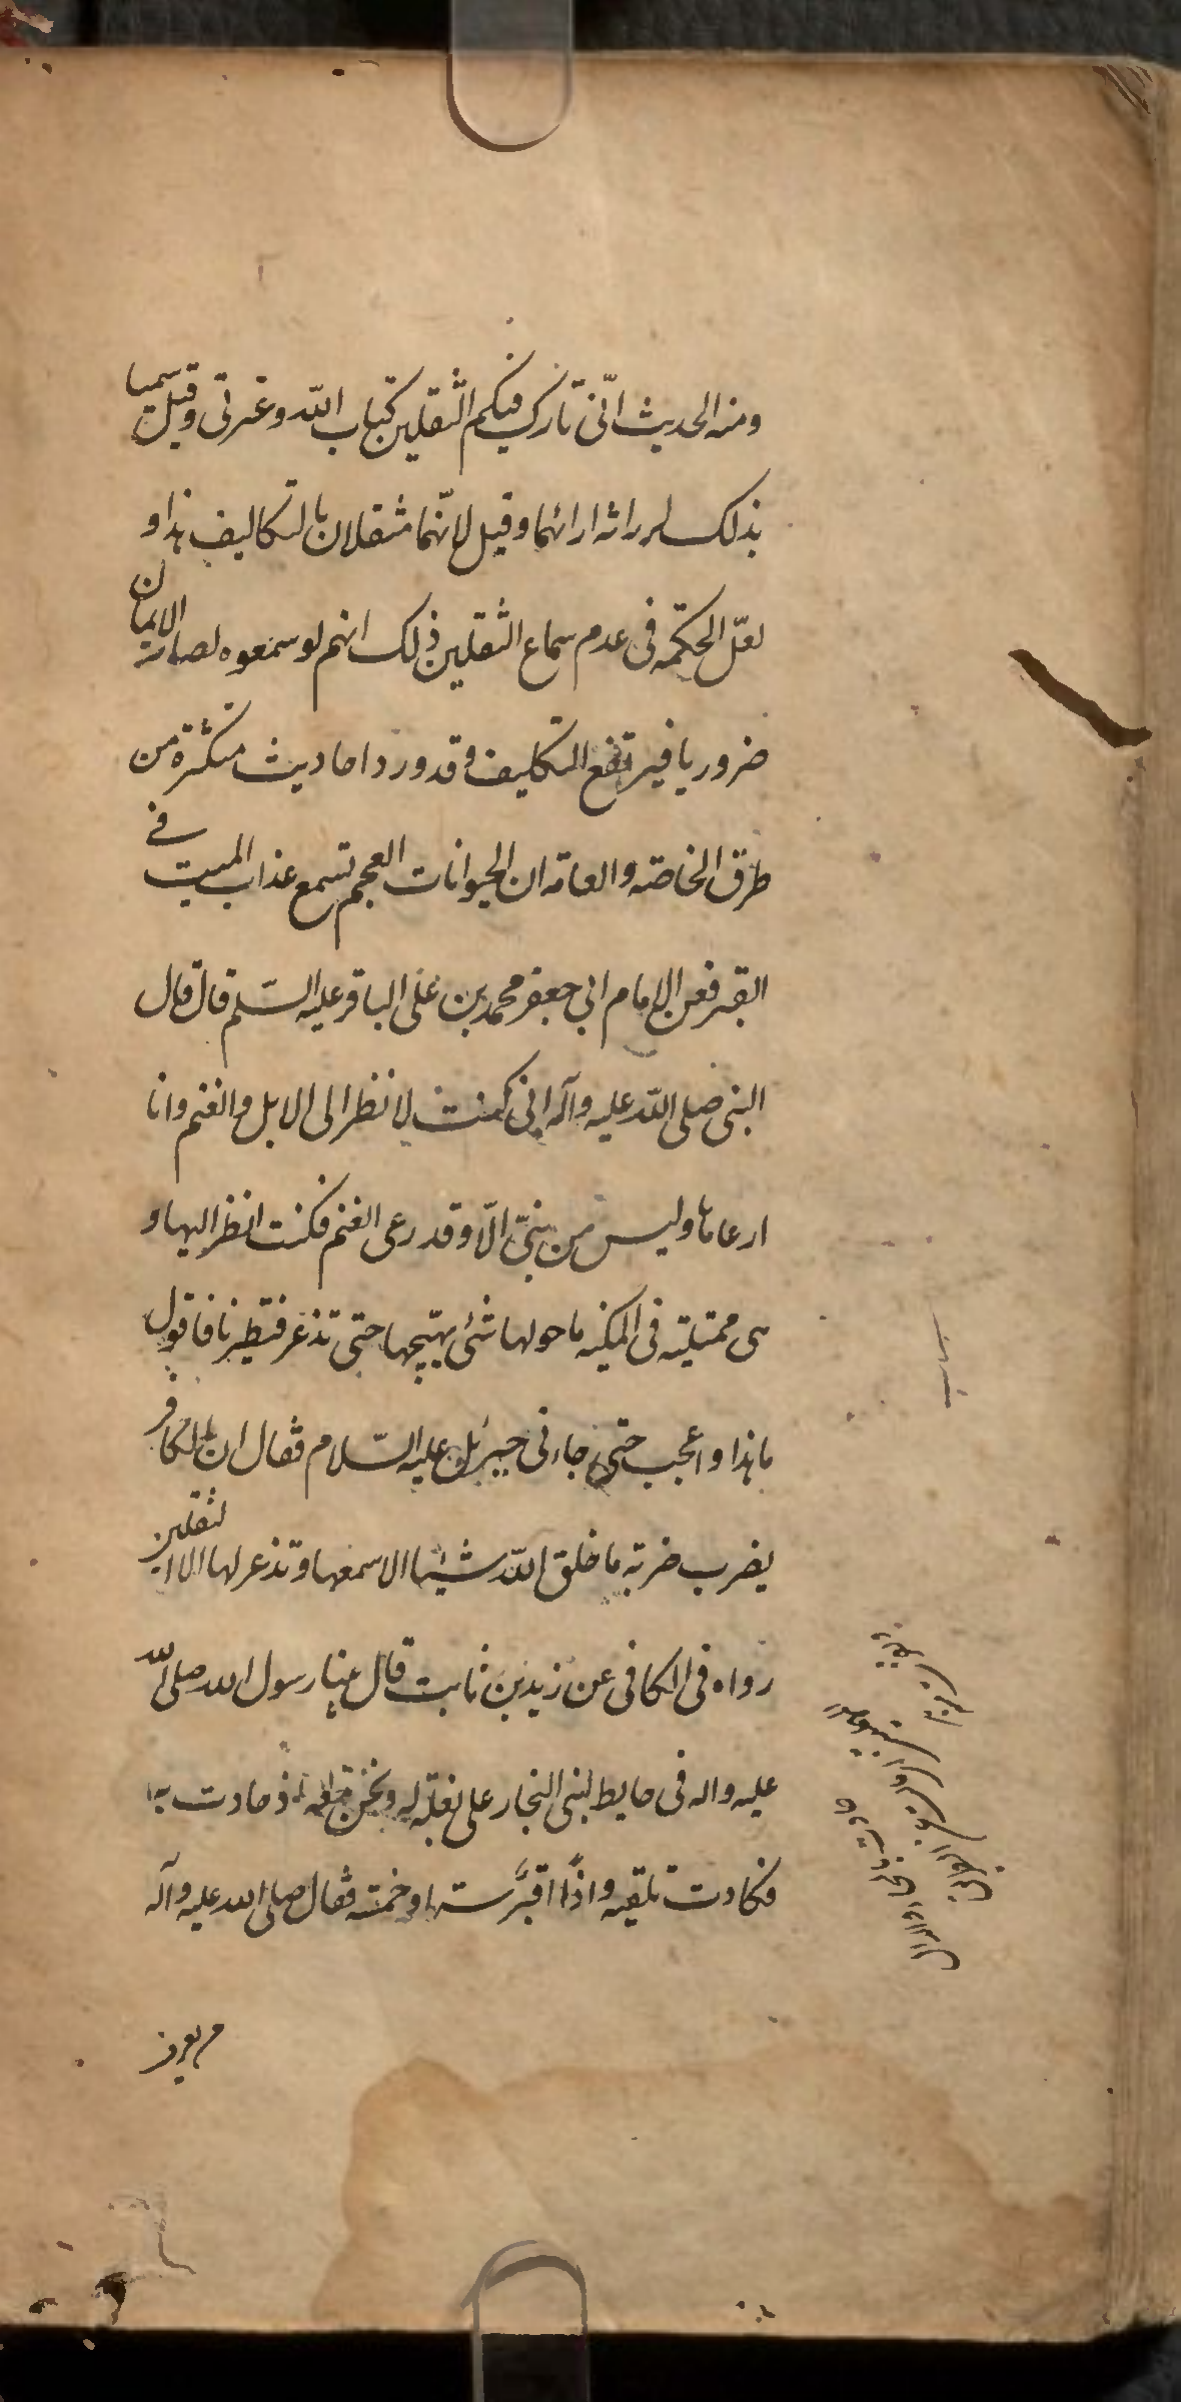 ومنه الحديث انّى تارك فيكم الثقلين كتاب الله وعترتى وقيل سميا
بذلك لرزانة ارائهما وقيل لانّهما مثقلان بالتكاليف هذا و
لعلّ الحكمه فى عدم سماع الثقلين ذلك انهم لو سمعوه لصار الايمان
ضروريا فيرتفع التكليف وقد ورد احاديث متكثرة من
طرق الخاصّه والعامه ان الحيوانات العجم تسمع عذاب الميت فى
القبر فعن الامام ابي جعفر محمد بن على الباقر عليه السّلم قال قال
النبى صلى اللّه عليه وآله انى كنت لانظر الى الابل والغنم وانا
ارعاها وليس من نبىّ الّا وقد رعى الغنم فكنت انظر اليها و
هى فى المكينه ما حولها شئ يهيّجها حتى تذعر فتطير فاقول
ما هذا واعجب حتى جاءنى جبرئيل عليه السّلام فقال ان الكافر
يضرب ضربة ما خلق اللّه شيئا الا سمعها وتذعر لها الا الثقلين
رواه فى الكافى عن زيد بن ثابت قال بينا رسول الله صلى الله
عليه واله فى حايط لبنى النجار على بغلة له ونحن معه اذ حادت به
فكادت تلقيه واذا اقبر ستة او خمسة فقال صلى الله عليه وآله